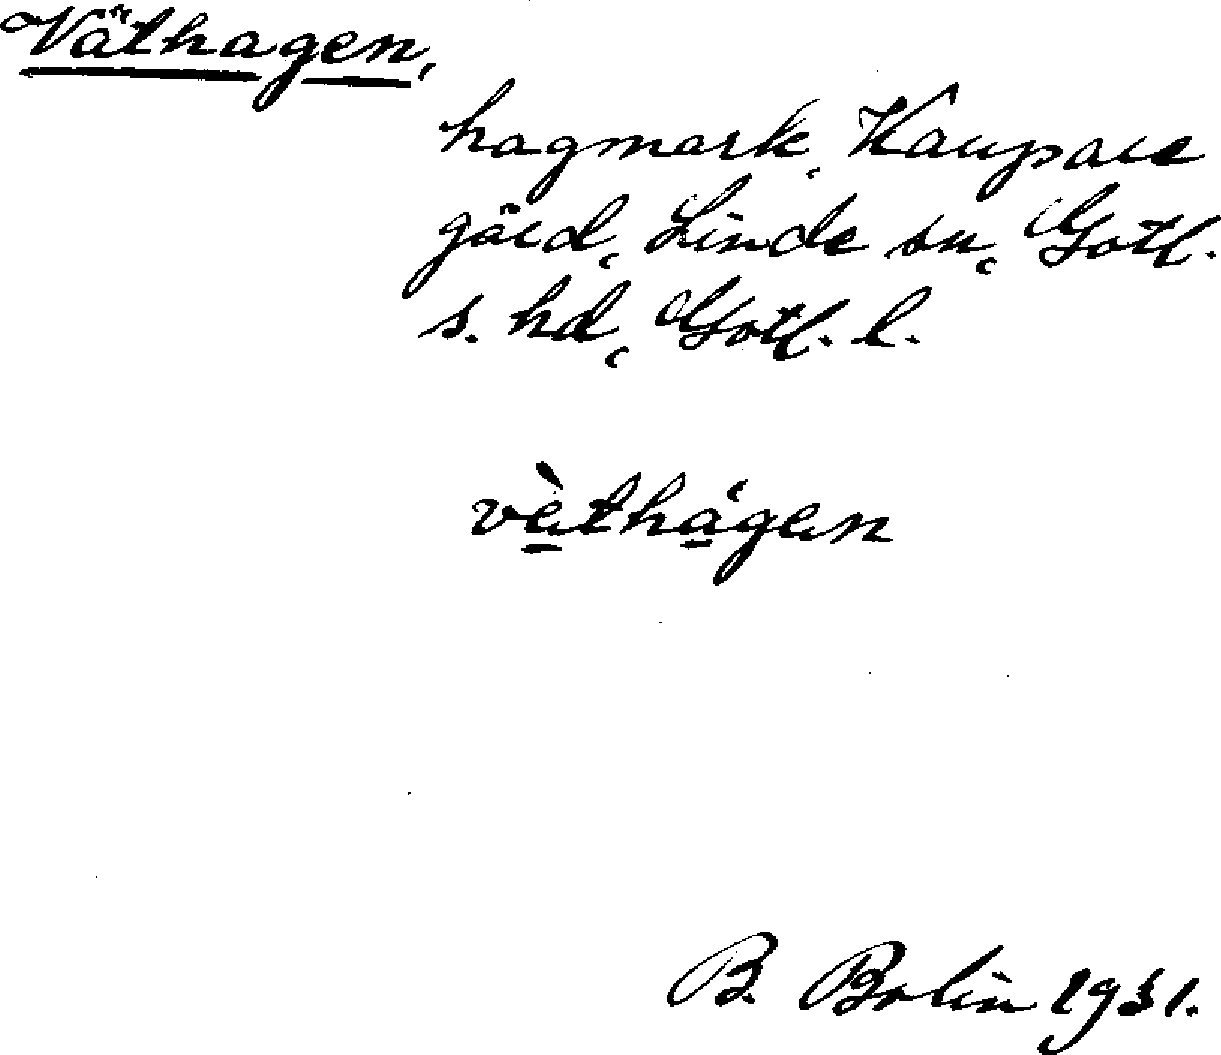 Väthagen,
hagmark, Kaupare
gård, Linde sn, Gotl.
s. hd, Gotl. l.
vèthágen
B. Bolin 1931.